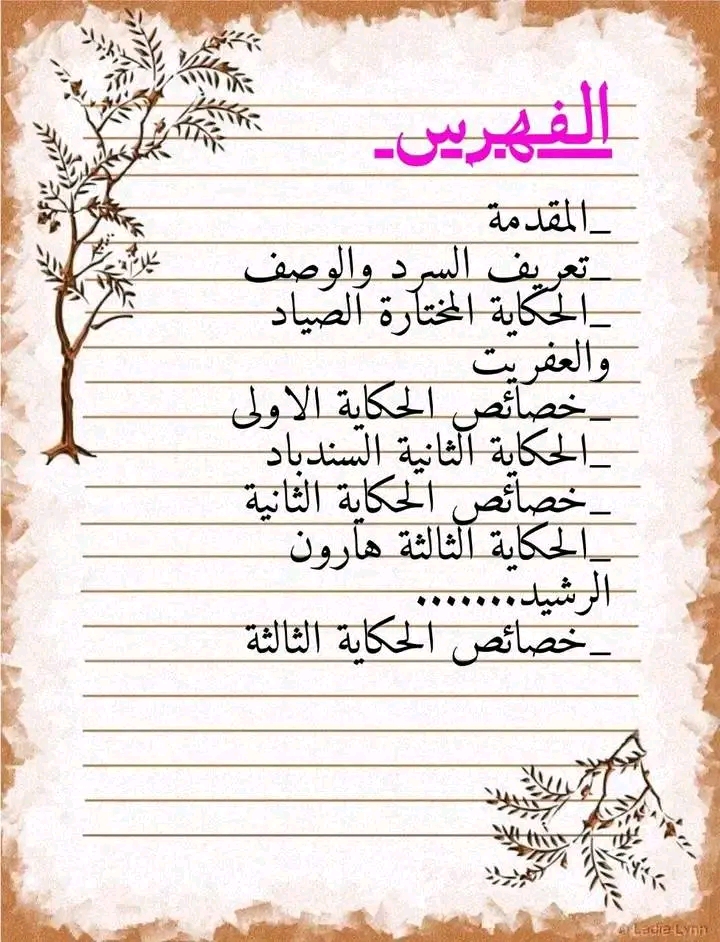 الفهرس
_المقدمة
_تعريف السرد والوصف
_الحكاية المختارة الصياد
والعفريت
_خصائص الحكاية الاولى
_الحكاية الثانية السندباد
_خصائص الحكاية الثانية
_الحكاية الثالثة هارون
الرشيد.......
_خصائص الحكاية الثالثة
© Ladie Lynn